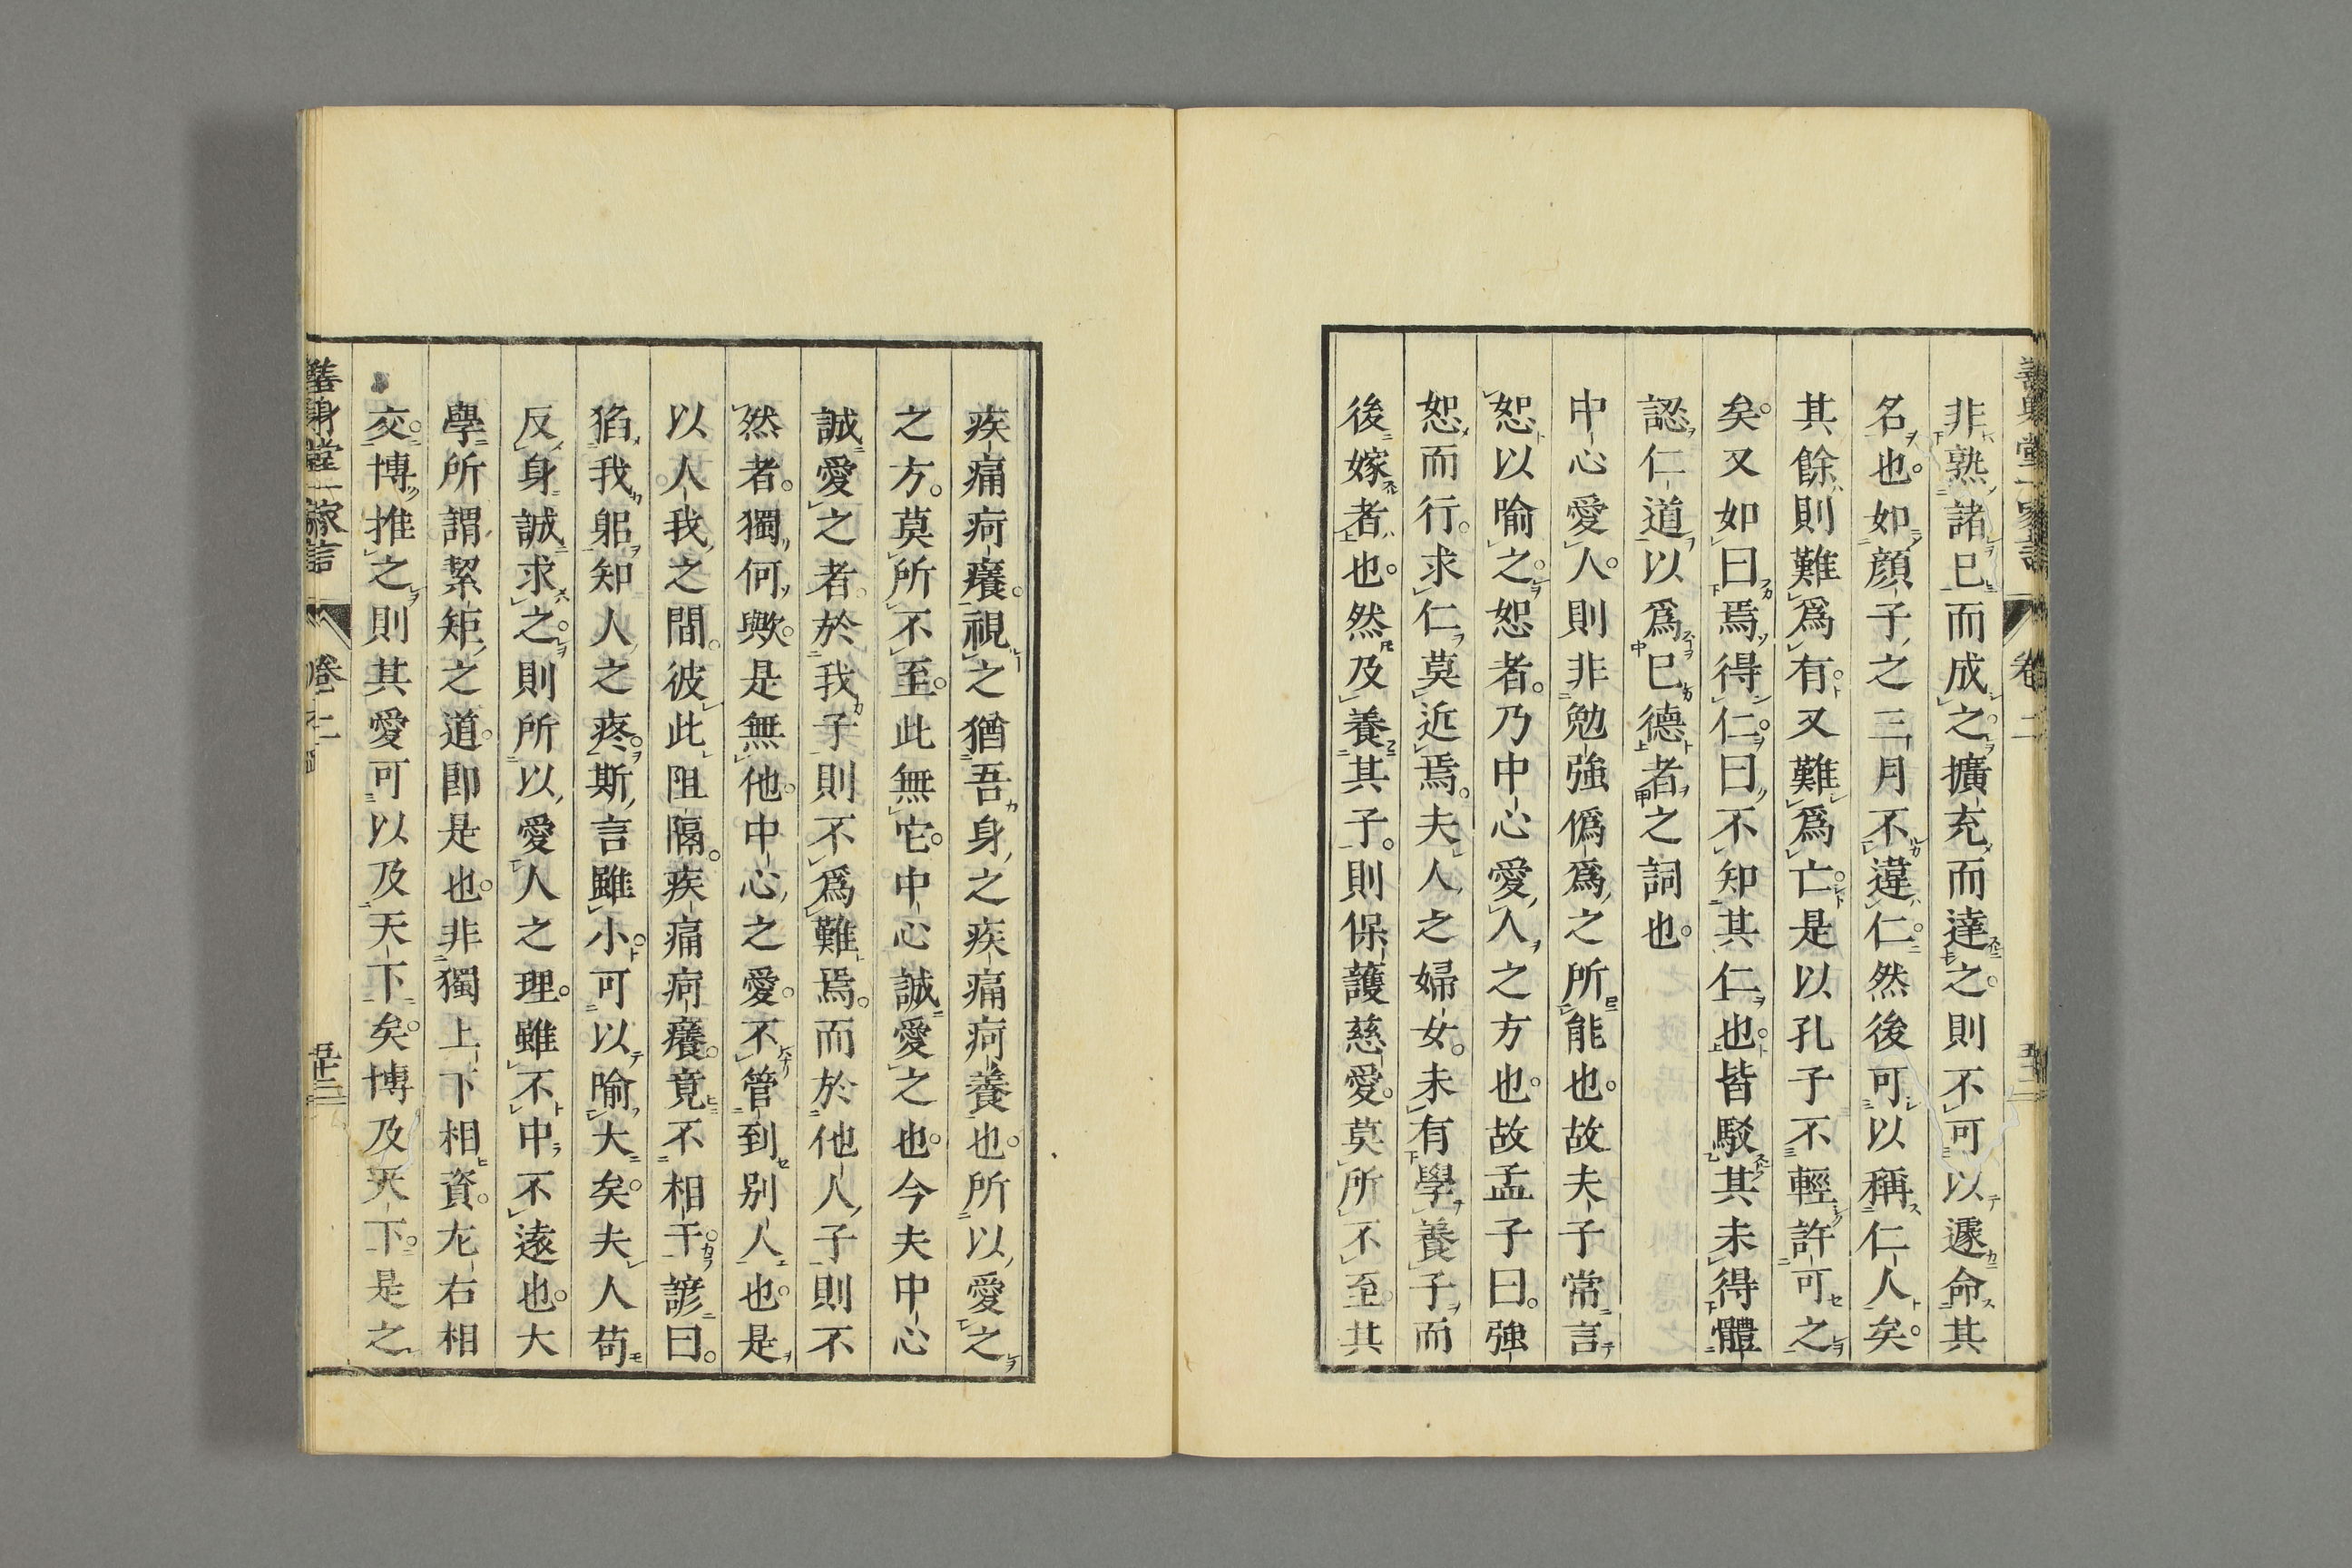 非熟諸已而成之擴充而達之則不可以遽命其
名也如顔子之三月不違仁然後可以稱仁人矣
其餘則難爲有又難爲亡是以孔子不輕許可之
矣又如曰焉得仁曰不知其仁也皆駁其未得體
認仁道以爲已德者之詞也
中心愛人則非勉強僞爲之所能也故夫子常言
恕以喻之恕者乃中心愛人之方也故孟子曰強
恕而行求仁莫近焉夫人之婦女未有學養子而
後嫁者也然及養其子則保護慈愛莫所不至其
疾痛疴癢視之猶吾身之疾痛疴養也所以愛之
之方莫所不至此無它中心誠愛之也今夫中心
誠愛之者於我子則不爲難焉而於他人子則不
然者獨何歟是無他中心之愛不管到别人也是
以人我之間彼此阻隔疾痛疴癢竟不相干諺曰
掐我躬知人之疼斯言雖小可以喻大矣夫人苟
反身誠求之則所以愛人之理雖不中不遠也大
學所謂絜矩之道卽是也非獨上下相資左右相
交博推之則其愛可以及天下矣博及天下是之
善身堂一家言 卷二 五十二